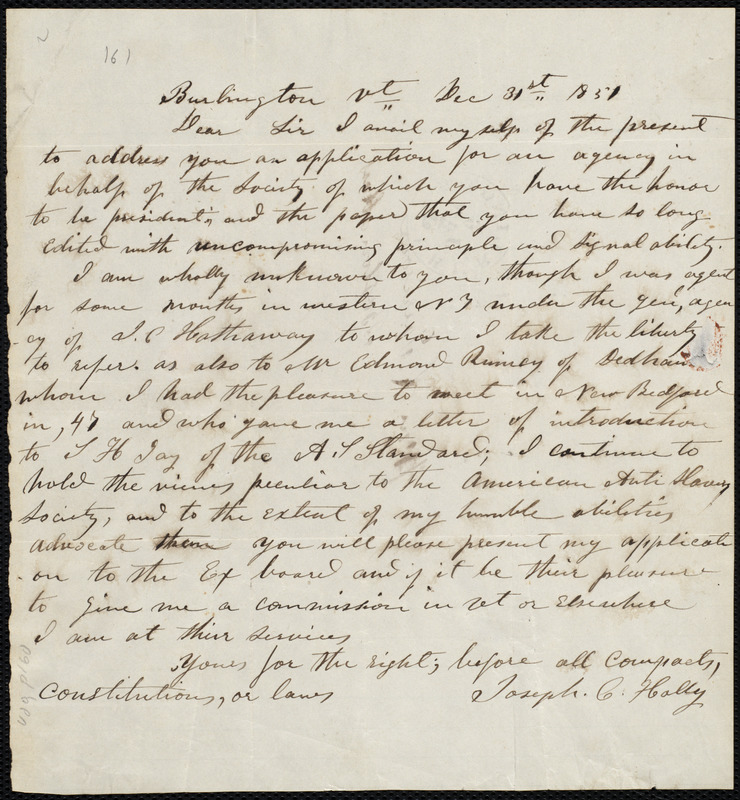 161
Burlington Vt Dec 31st 1851
Dear Sir I avail myself of the present
to address you an application for an agency in
behalf of the Society of which you have the honor
to be president, and the paper that you have so long
edited with uncompromising principle and signal ability.
I am wholly unknown to you, though I was agent
for some months in western N Y under the gen, agen
-cy of J. C Hathaway to whom I take the liberty
to refer. as also to Mr Edmond Quincy of Dedham
whom I had the pleasure to meet in New Bedford
in, 47 and who gave me a letter of introduction
to S H Gay of the A S Standard. I continue to
hold the views peculiar to the American Anti Slavery
Society, and to the extent of my humble abilities
advocate them you will please present my applicati
-on to the Ex board and if it be their pleasure
to give me a commission in vt or elsewhere
I am at their services
Yours for the right; before all compacts,
constitutions, or laws Joseph. C. Holly